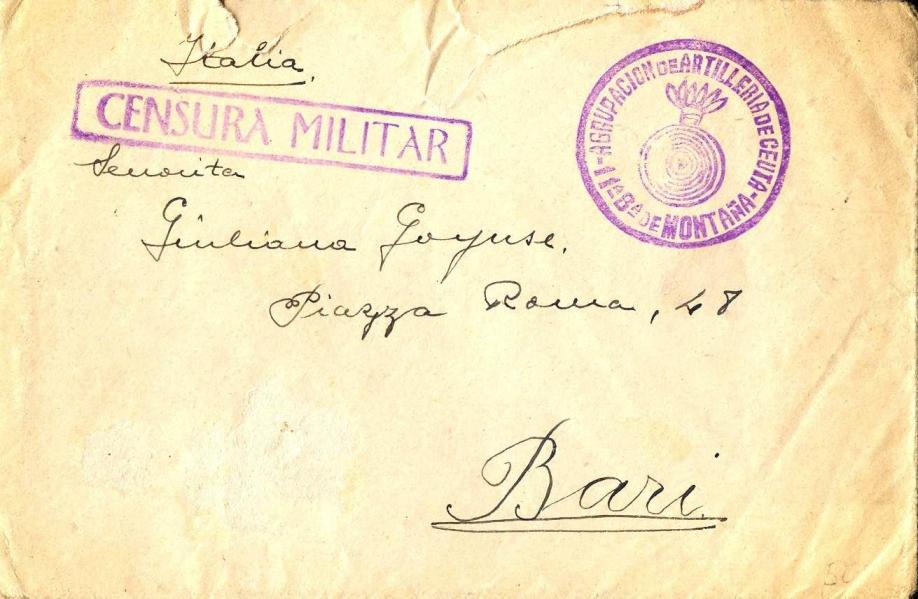 Italia,
CENSURA MILITAR
AGRUPACION DE ARTILLERIA DE CEUTA
-11ª Bª DE MONTAÑA-
Senorita
Giuliana Goyuse.
Piazza Roma, 48
Bari.